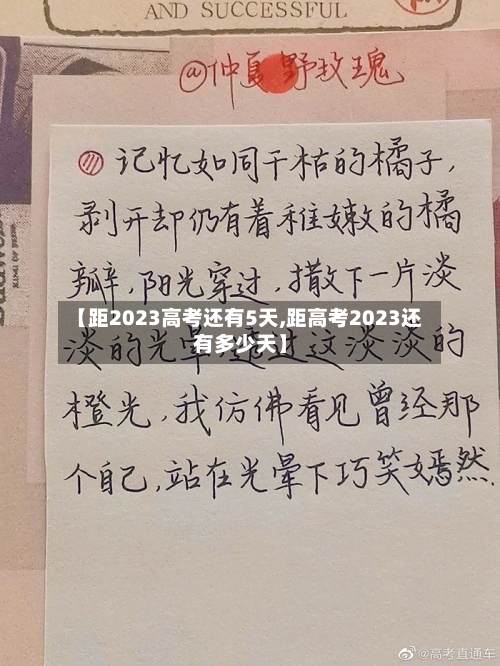 AND SUCCESSFUL
@仲夏野玫瑰
记忆如同干枯的橘子，
剥开却仍有着稚嫩的橘
瓣，阳光穿过，撒下一片淡
【距2023高考还有5天,距高考2023还
有多少天】
淡的光晕 透过这淡淡的
橙光，我仿佛看见曾经那
个自己，站在光晕下巧笑嫣然.
@高考直通车